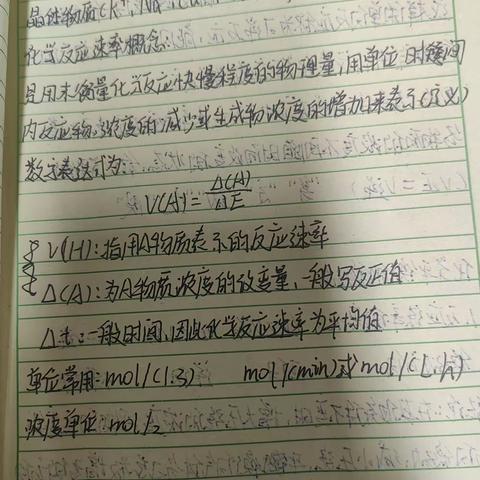 晶体物质(K⁺, Na
化学反应速率概念:
是用来衡量化学反应快慢程度的物理量,用单位时间
内反应物浓度的减少或生成物浓度的增加来表示(定义)
数学表达式为:
V(A)=Δ(A)/ΔE
V(H):指用A物质表示的反应速率
Δ(A):为A物质浓度的改变量,一般写反正值
Δt:一般时间,因此化学反应速率为平均值
单位常用:mol/(l.s) mol/(min)或mol/(L.h)
浓度单位:mol/L